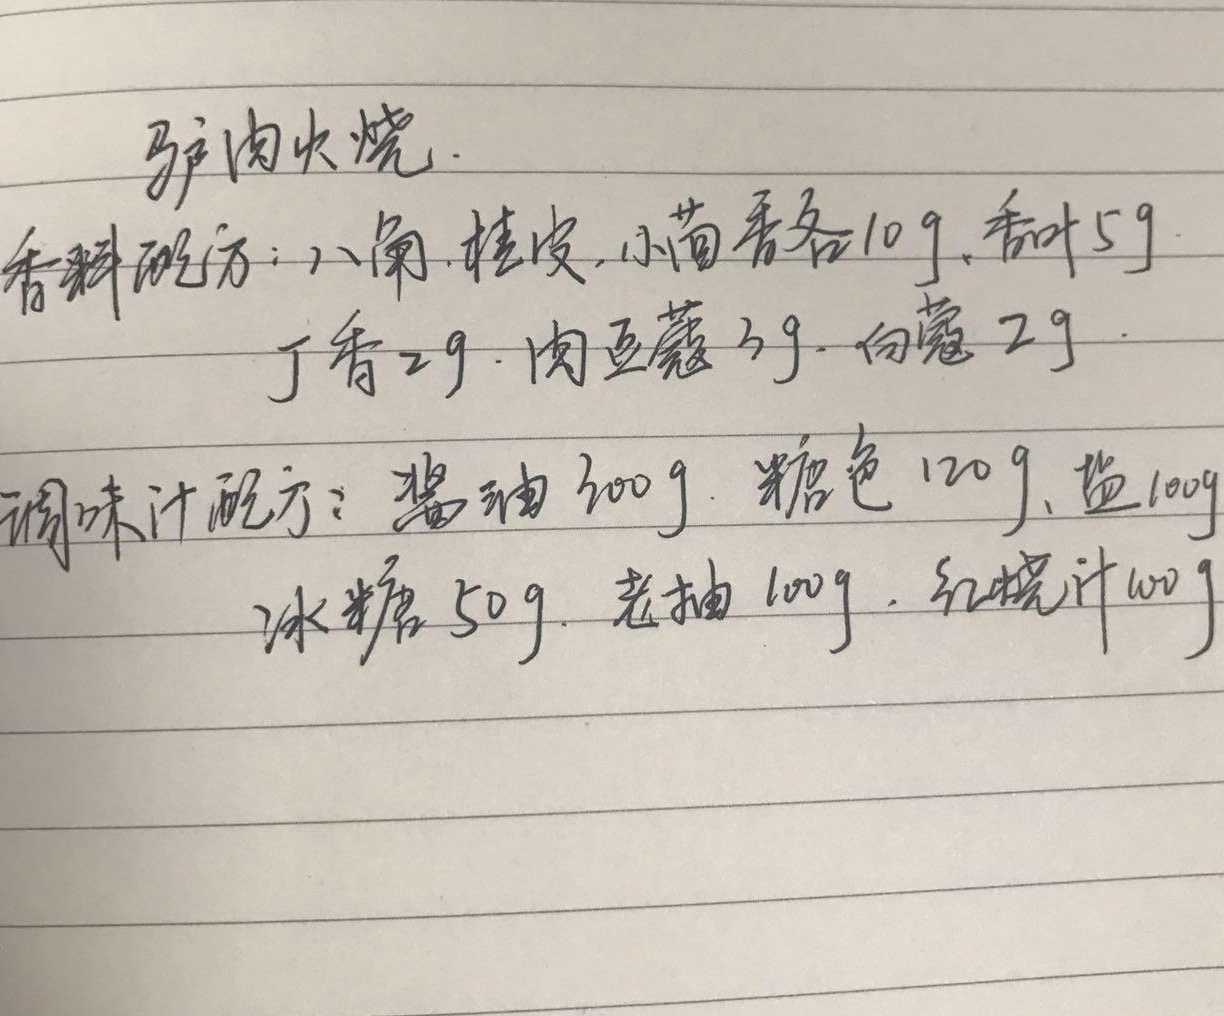 驴肉火烧.
香料配方:八角.桂皮.小茴香各10g、香叶5g.
丁香2g.肉豆蔻3g.白蔻2g.
调味汁配方:酱油300g.糖色120g、盐100g
冰糖50g.老抽100g.红烧汁100g